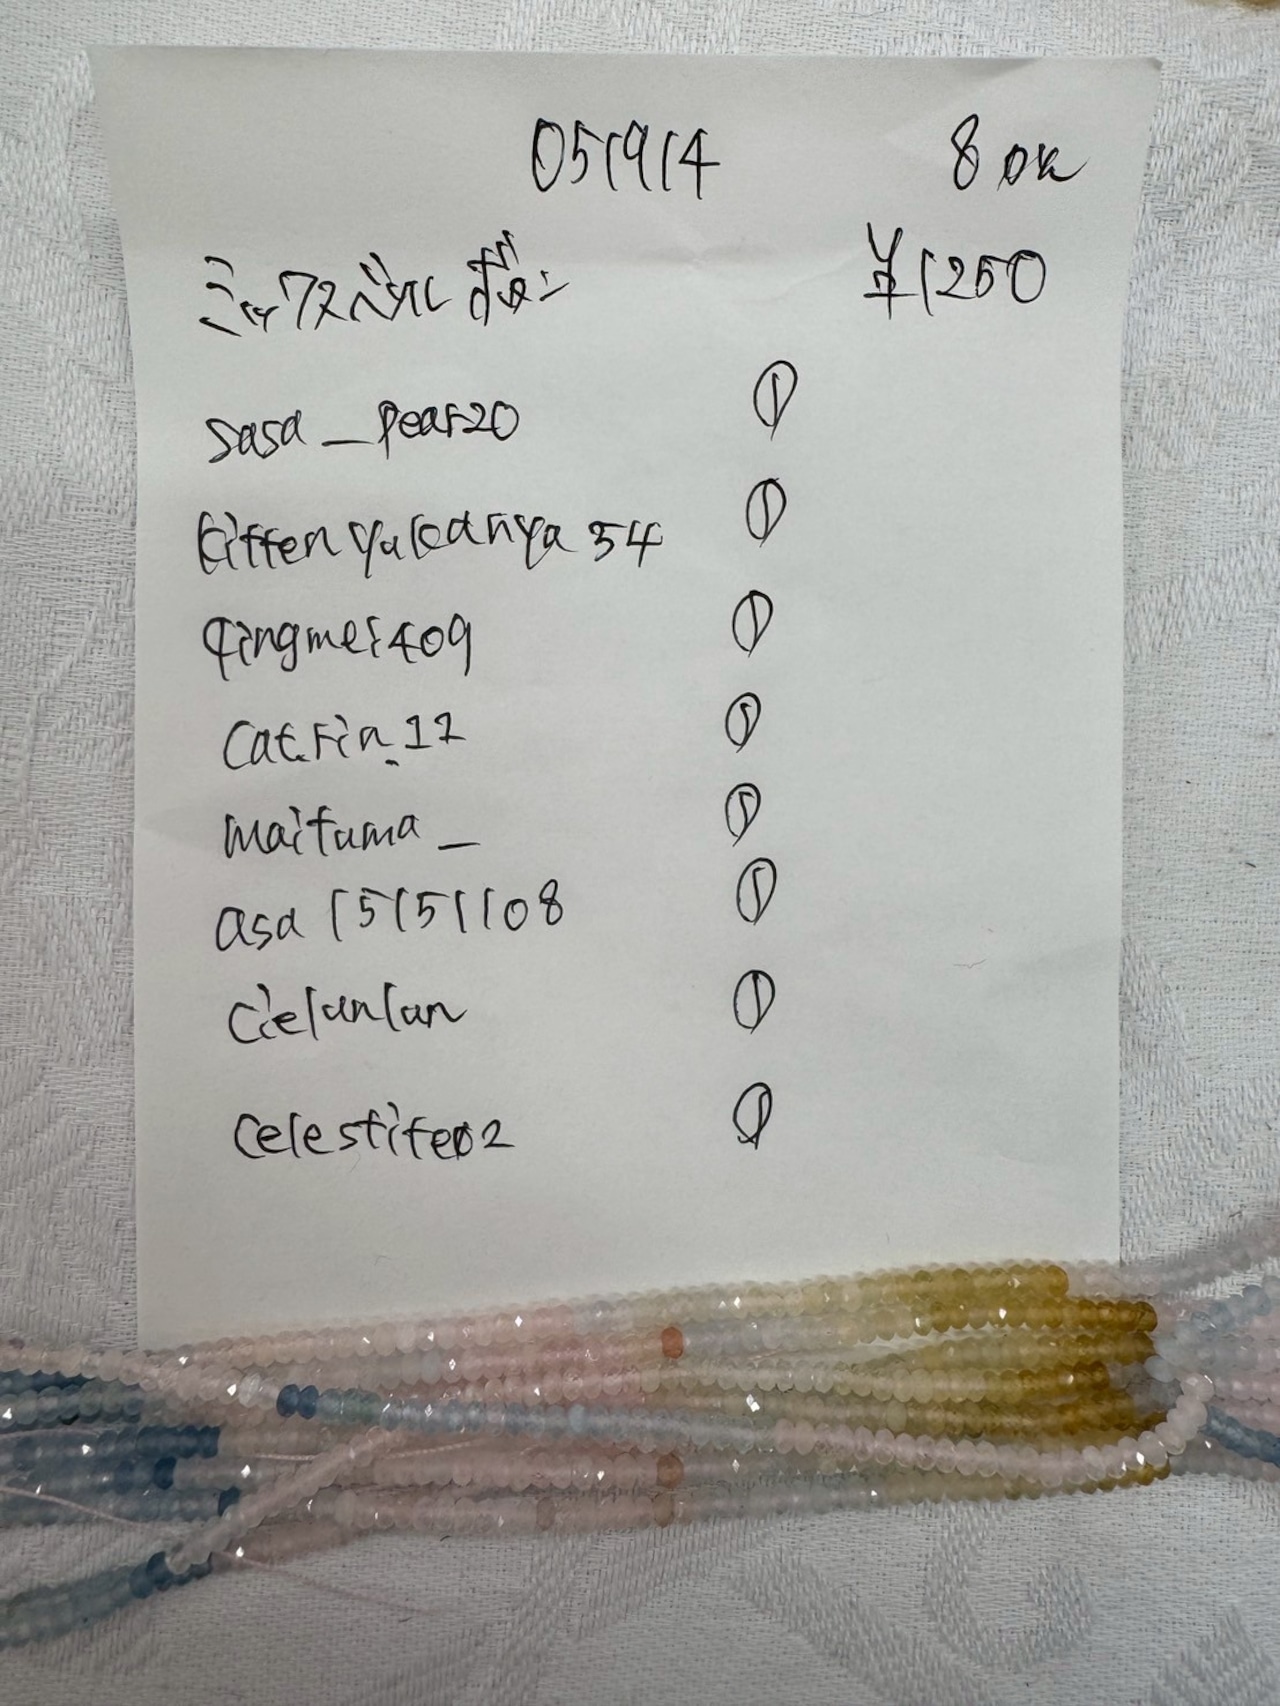 051914 8 ok
ミックスベリル ボタン ¥1250
sasa_pear20 ①
kittenyukanya54 ①
qingmei409 ①
cat.rin_17 ①
maifuma_ ①
asa15151108 ①
cielunlun ①
celestite02 ①